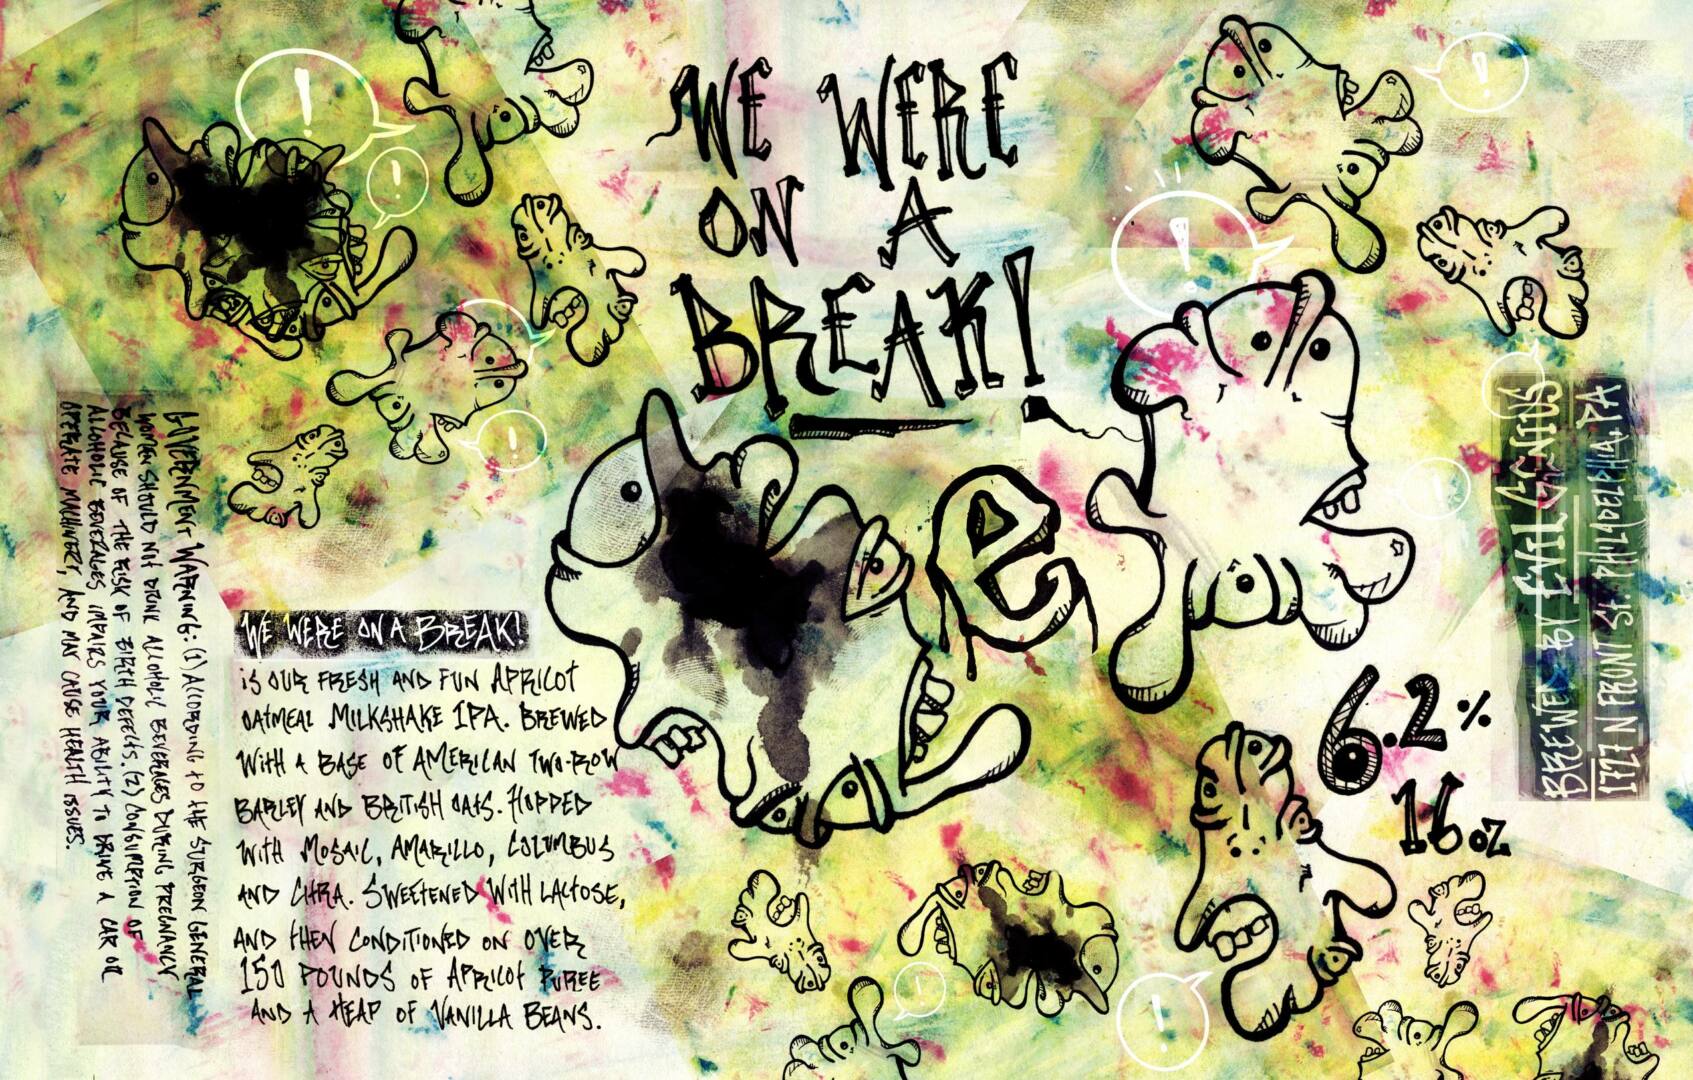 WE WERE
ON A
BREAK!
e
6.2%
16 oz
WE WERE ON A BREAK!
is OUR FRESH AND FUN APRICOT
OATMEAL MILKSHAKE IPA. BREWED
WITH A BASE OF AMERICAN TWO-ROW
BARLEY AND BRITISH OATS. HOPPED
WITH MOSAIC, AMARILLO, COLUMBUS
AND CITRA. SWEETENED WITH LACTOSE,
AND THEN CONDITIONED ON OVER
150 POUNDS OF APRICOT PUREE
AND A HEAP OF VANILLA BEANS.
GOVERNMENT WARNING: (1) ACCORDING TO THE SURGEON GENERAL
WOMEN SHOULD NOT DRINK ALCOHOLIC BEVERAGES DURING PREGNANCY
BECAUSE OF THE RISK OF BIRTH DEFECTS. (2) CONSUMPTION OF
ALCOHOLIC BEVERAGES IMPAIRS YOUR ABILITY TO DRIVE A CAR OR
OPERATE MACHINERY, AND MAY CAUSE HEALTH ISSUES.
BREWED BY EVIL GENIUS
1727 N FRONT St. PHILADELPHIA, PA
!
!
!
!
!
!
!
!
!